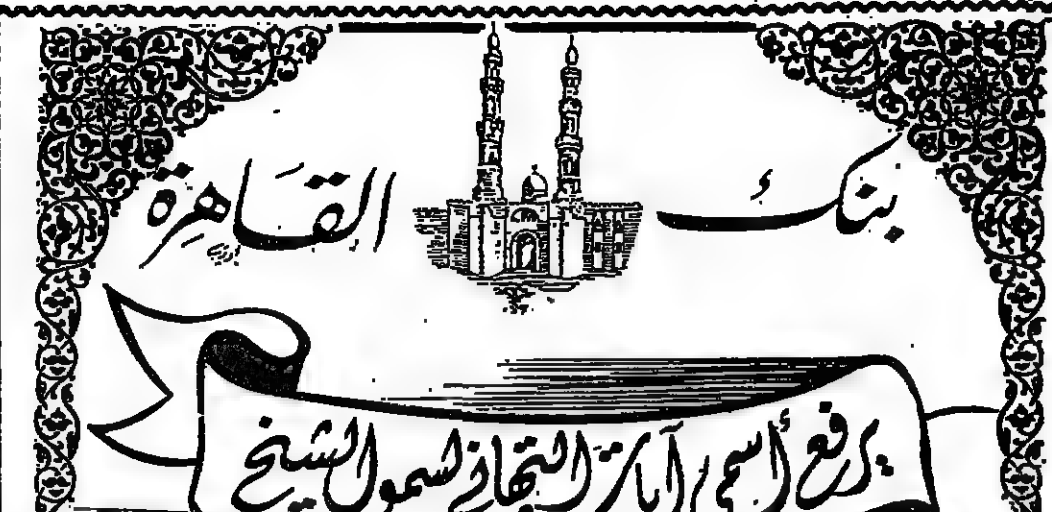 بنك القاهرة
يرفع أسمى آيات التهاني لسمو الشيخ